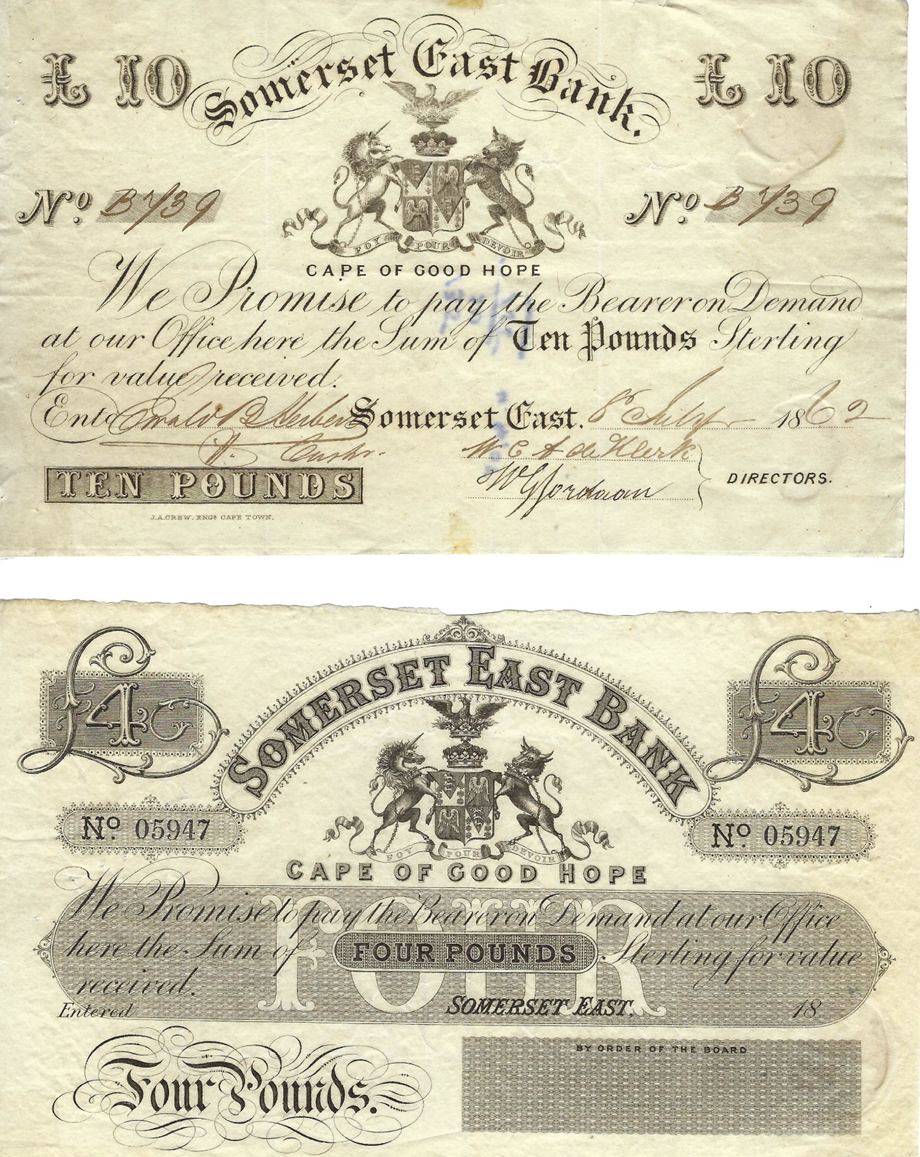 £10 Somerset East Bank. £10
No B1/39 No B1/39
FOY POUR DEVOIR
CAPE OF GOOD HOPE
We Promise to pay the Bearer on Demand
at our Office here the Sum of Ten Pounds Sterling
for value received.
Entd Somerset East. 8 July 1862
W E A de Klerk
TEN POUNDS W G Jordaan DIRECTORS.
J.A.CREW. ENGR. CAPE TOWN.
£4 SOMERSET EAST BANK £4
No 05947 No 05947
FOY POUR DEVOIR
CAPE OF GOOD HOPE
FOUR
We Promise to pay the Bearer on Demand at our Office
here the Sum of FOUR POUNDS Sterling for value
received.
Entered SOMERSET EAST, 18
BY ORDER OF THE BOARD
Four Pounds.